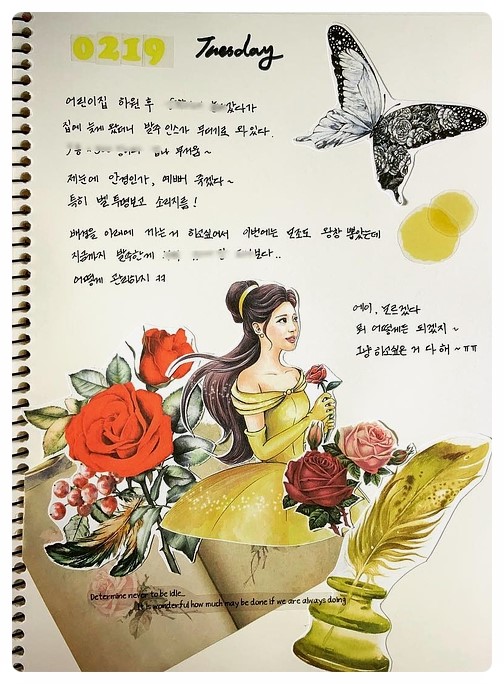 0219 Tuesday
어린이집 하원 후 갔다가
집에 늦게 왔더니 발주 인스가 무더기로 와 있다.
무서움 ~
제눈에 안경인가, 예뻐 죽겠다 ~
특히 벨 투명보고 소리지름!
배경을 아래에 까는거 하고싶어서 이번에는 모조도 왕창 뽑았는데
지금까지 발주한게 보다..
어떻게 관리하지 ㅋㅋ
에이, 모르겠다
뭐 어떻게든 되겠지 ~
그냥 하고싶은 거 다 해 ~ ㅠㅠ
Determine never to be idle...
It is wonderful how much may be done if we are always doing